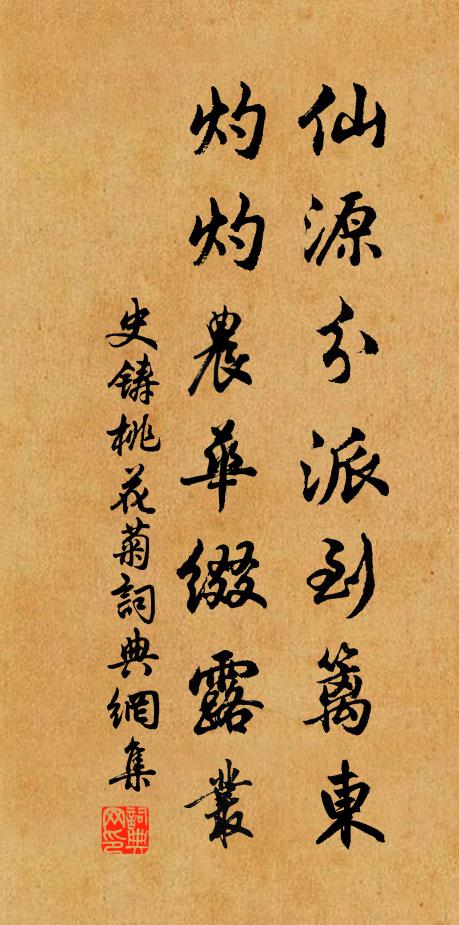 仙源分派到籬東
灼灼農華綴露叢
史鑄桃花菊詞典網集
詞典网印